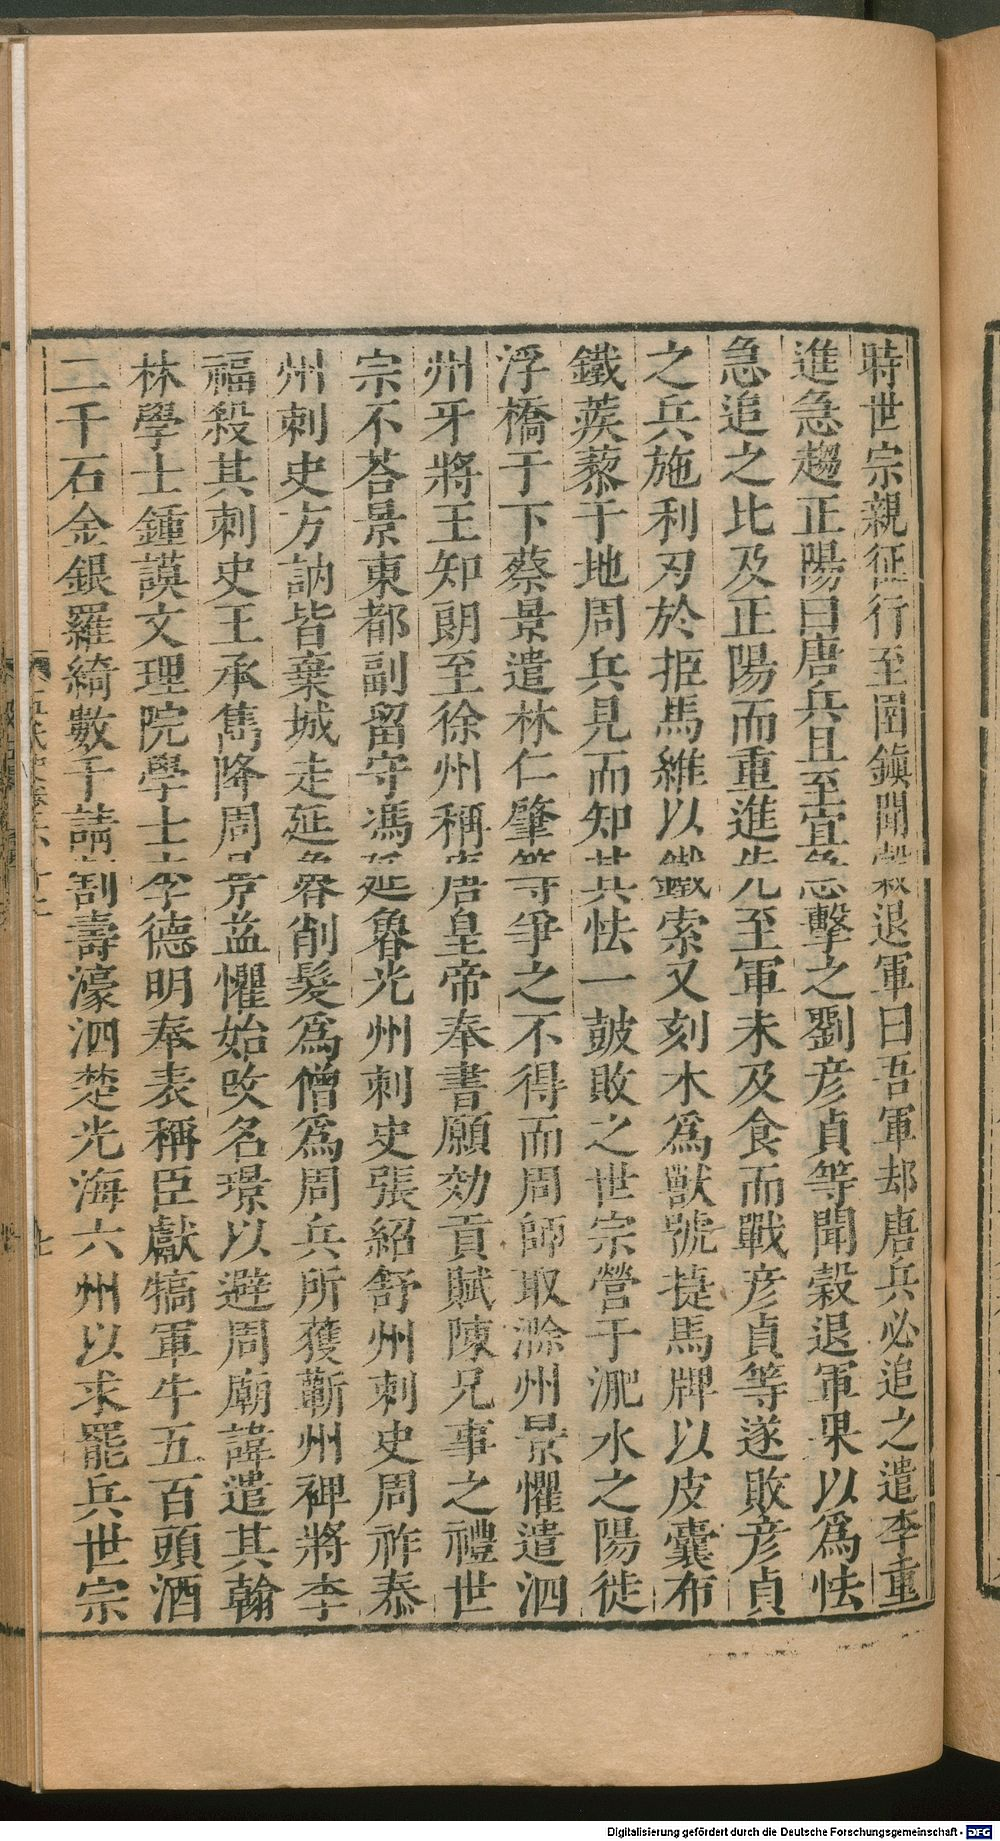 時世宗親征行至圉鎮聞穀退軍曰吾軍却唐兵必追之遣李重
進急趨正陽曰唐兵且至宜急擊之劉彦貞等聞穀退軍果以爲怯
急追之比及正陽而重進先至軍未及食而戰彦貞等遂敗彦貞
之兵施利刃於拒馬維以鐵索又刻木爲獸號捷馬牌以皮囊布
鐵蒺藜于地周兵見而知其怯一鼓敗之世宗營于淝水之陽徙
浮橋于下蔡景遣林仁肇等爭之不得而周師取滁州景懼遣泗
州牙將王知朗至徐州稱唐皇帝奉書願効貢賦陳兄事之禮世
宗不荅景東都副留守馮延魯光州刺史張紹舒州刺史周祚泰
州刺史方訥皆棄城走延魯削髮爲僧爲周兵所獲蘄州裨將李
福殺其刺史王承雋降周景益懼始攺名璟以避周廟諱遣其翰
林學士鍾謨文理院學士李德明奉表稱臣獻犒軍牛五百頭酒
二千石金銀羅綺數千請割壽濠泗楚光海六州以求罷兵世宗
Digitalisierung gefördert durch die Deutsche Forschungsgemeinschaft - DFG